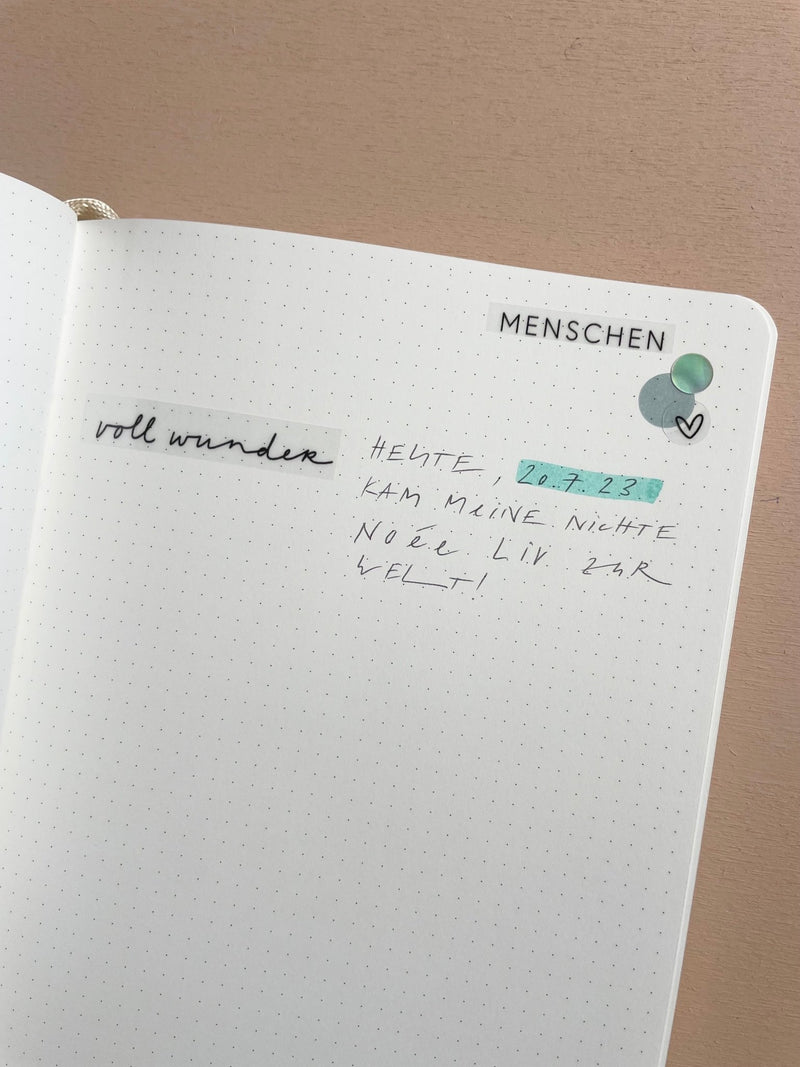 MENSCHEN
voll wunder
HEUTE, 20.7.23
KAM MEINE NICHTE
NOÉE LIV ZUR
WELT!